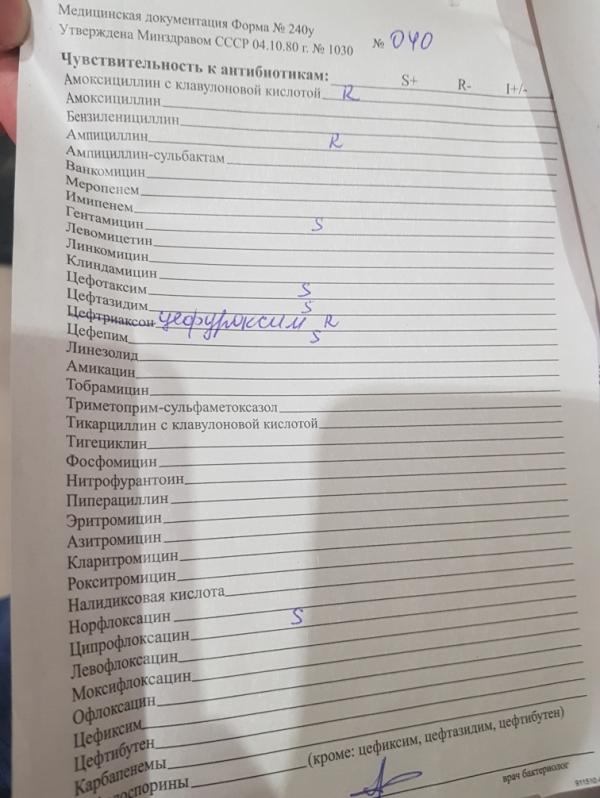 Медицинская документация Форма № 240у
Утверждена Минздравом СССР 04.10.80 г. № 1030 № 040
Чувствительность к антибиотикам: S+ R- I+/-
Амоксициллин с клавулоновой кислотой R
Амоксициллин
Бензиленициллин
Ампициллин R
Ампициллин-сульбактам
Ванкомицин
Меропенем
Имипенем
Гентамицин S
Левомицетин
Линкомицин
Клиндамицин
Цефотаксим S
Цефтазидим S
Цефтриаксон цефуроксим R
Цефепим S
Линезолид
Амикацин
Тобрамицин
Триметоприм-сульфаметоксазол
Тикарциллин с клавулоновой кислотой
Тигециклин
Фосфомицин
Нитрофурантоин
Пиперациллин
Эритромицин
Азитромицин
Кларитромицин
Рокситромицин
Налидиксовая кислота
Норфлоксацин S
Ципрофлоксацин
Левофлоксацин
Моксифлоксацин
Офлоксацин
Цефиксим
Цефтибутен
Карбапенемы (кроме: цефиксим, цефтазидим, цефтибутен)
лоспорины врач бактериолог